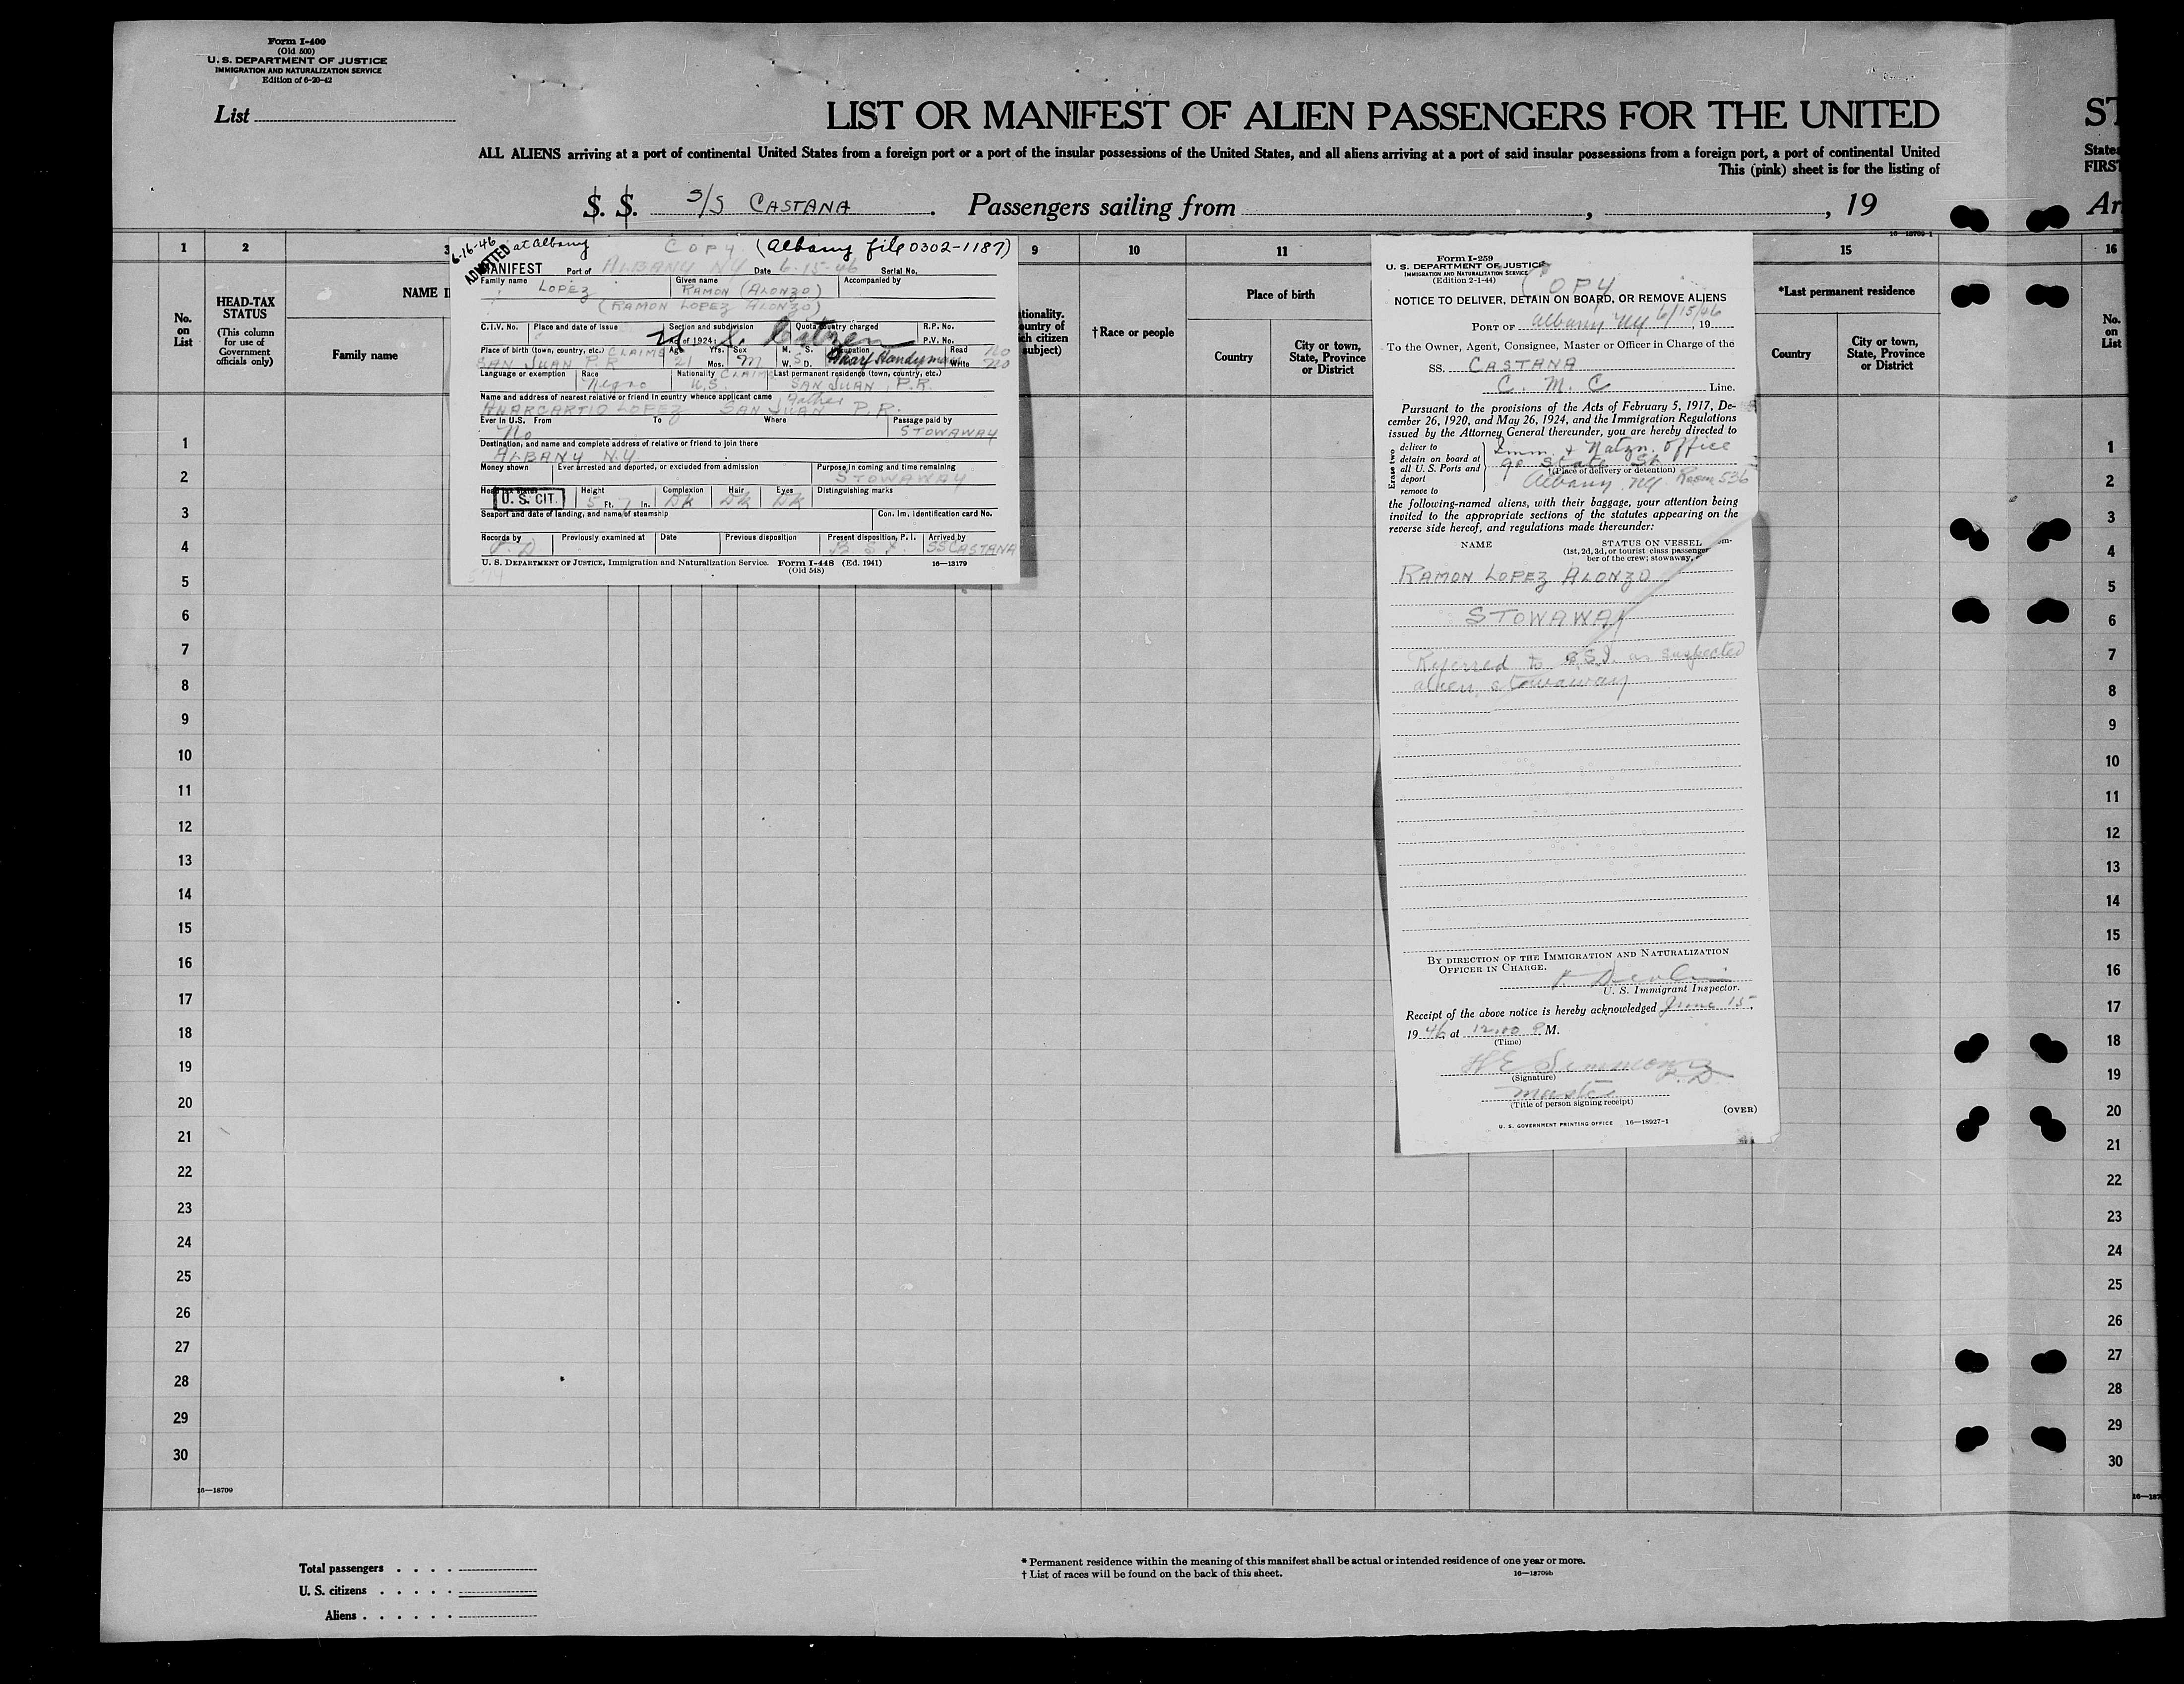 Form I-400
(Old 500)
U. S. DEPARTMENT OF JUSTICE
IMMIGRATION AND NATURALIZATION SERVICE
Edition of 6-20-42
List
LIST OR MANIFEST OF ALIEN PASSENGERS FOR THE UNITED
ST
ALL ALIENS arriving at a port of continental United States from a foreign port or a port of the insular possessions of the United States, and all aliens arriving at a port of said insular possessions from a foreign port, a port of continental United
States
This (pink) sheet is for the listing of
FIRST
S. S. S/S CASTANA. Passengers sailing from , , 19
Ar
16—18709-1
1 2 3 9 10 11 15 16
No. on List
HEAD-TAX STATUS
(This column for use of Government officials only)
NAME I
Family name
†Race or people
Place of birth
Country
City or town, State, Province or District
*Last permanent residence
Country
City or town, State, Province or District
No. on List
6-16-46 at Albany COPY (Albany file 0302-1187)
ADMITTED
MANIFEST Port of ALBANY NY Date 6-15-46 Serial No.
Family name LOPEZ Given name RAMON (ALONZO) Accompanied by
(RAMON LOPEZ ALONZO)
C.I.V. No. Place and date of issue Section and subdivision Quota country charged R.P. No.
Act of 1924 P.V. No.
U. S. Citizen
Place of birth (town, country, etc.) CLAIMS Age Yrs. Sex M. S. Occupation Read No
SAN JUAN P.R. 21 Mos. M W. S D. Wharf Handyman Write No
Language or exemption Race Nationality CLAIMS Last permanent residence (town, country, etc.)
Negro U.S. SAN JUAN, P.R.
Name and address of nearest relative or friend in country whence applicant came Father
LOPEZ SAN JUAN P.R.
Ever in U.S. From To Where Passage paid by
No STOWAWAY
Destination, and name and complete address of relative or friend to join there
ALBANY N.Y
Money shown Ever arrested and deported, or excluded from admission Purpose in coming and time remaining
STOWAWAY
Head tax status Height Complexion Hair Eyes Distinguishing marks
U. S. CIT. 5 Ft. 7 In. Dk Dk Dk
Seaport and date of landing, and name of steamship Con. Im. Identification card No.
Records by Previously examined at Date Previous disposition Present disposition, P. I. Arrived by
P. D. B. S. I. SS CASTANA
U. S. DEPARTMENT OF JUSTICE, Immigration and Naturalization Service. Form I-448 (Ed. 1941) 16—13179
(Old 548)
Form I-259
U. S. DEPARTMENT OF JUSTICE
IMMIGRATION AND NATURALIZATION SERVICE
(Edition 2-1-44)
COPY
NOTICE TO DELIVER, DETAIN ON BOARD, OR REMOVE ALIENS
PORT OF Albany NY 6/15/46, 19
To the Owner, Agent, Consignee, Master or Officer in Charge of the
SS. CASTANA
C. M. C Line.
Pursuant to the provisions of the Acts of February 5, 1917, De-
cember 26, 1920, and May 26, 1924, and the Immigration Regulations
issued by the Attorney General thereunder, you are hereby directed to
Erase two
deliver to
detain on board at
all U. S. Ports and
deport
remove to
Imm. & Natzn. Office
90 State St.
(Place of delivery or detention)
Albany NY. Room 536
the following-named aliens, with their baggage, your attention being
invited to the appropriate sections of the statutes appearing on the
reverse side hereof, and regulations made thereunder:
NAME STATUS ON VESSEL
(1st, 2d, 3d, or tourist class passenger
ber of the crew; stowaway,
RAMON LOPEZ ALONZO
STOWAWAY
Referred to B.S.I. as suspected
alien stowaway
BY DIRECTION OF THE IMMIGRATION AND NATURALIZATION
OFFICER IN CHARGE.
U. S. Immigrant Inspector.
Receipt of the above notice is hereby acknowledged June 15,
19 46, at 12:00 P. M.
(Time)
H E Simmons
P. D.
(Signature)
Master
(Title of person signing receipt)
(OVER)
U. S. GOVERNMENT PRINTING OFFICE 16—18927-1
1 1
2 2
3 3
4 4
5 5
6 6
7 7
8 8
9 9
10 10
11 11
12 12
13 13
14 14
15 15
16 16
17 17
18 18
19 19
20 20
21 21
22 22
23 23
24 24
25 25
26 26
27 27
28 28
29 29
30 30
16—18709
Total passengers . . . .
U. S. citizens . . . . .
Aliens . . . . . .
* Permanent residence within the meaning of this manifest shall be actual or intended residence of one year or more.
† List of races will be found on the back of this sheet. 16—18709b